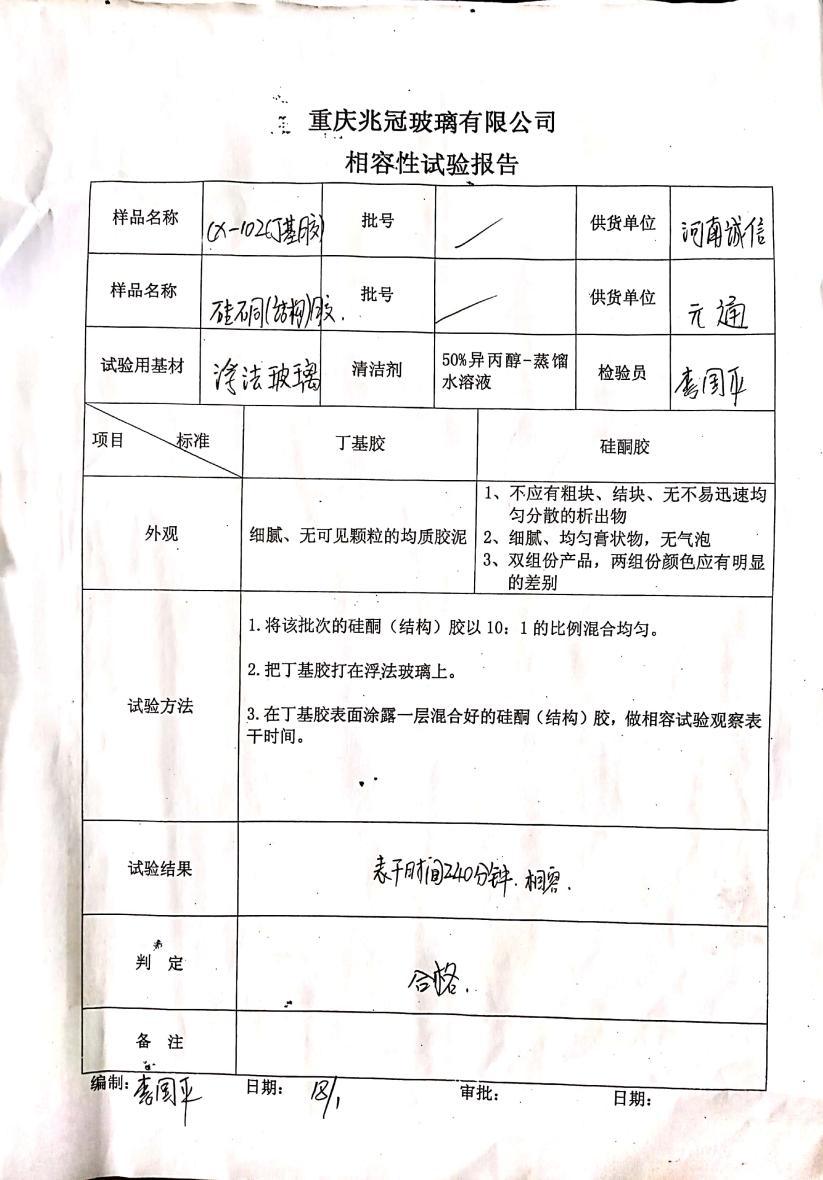 重庆兆冠玻璃有限公司
相容性试验报告
样品名称 CX-102(丁基胶) 批号 / 供货单位 河南诚信
样品名称 硅硐(结构)胶. 批号 / 供货单位 元通
试验用基材 浮法玻璃 清洁剂 50%异丙醇-蒸馏
水溶液 检验员 李国平
项目 标准 丁基胶 硅酮胶
外观 细腻、无可见颗粒的均质胶泥
1、不应有粗块、结块、无不易迅速均
匀分散的析出物
2、细腻、均匀膏状物，无气泡
3、双组份产品，两组份颜色应有明显
的差别
试验方法
1.将该批次的硅酮（结构）胶以10：1的比例混合均匀。
2.把丁基胶打在浮法玻璃上。
3.在丁基胶表面涂露一层混合好的硅酮（结构）胶，做相容试验观察表
干时间。
试验结果 表干时间240分钟.相容.
判 定 合格.
备 注
编制：李国平 日期： 18/1 审批： 日期：